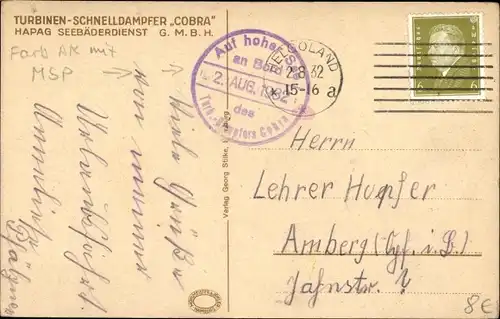 TURBINEN-SCHNELLDAMPFER „COBRA"
HAPAG SEEBÄDERDIENST G. M. B. H.
Farb AK mit
MSP
Auf hoher See
an Bord
2. AUG. 1932
des
Turb.-Dampfers Cobra
HELGOLAND
2.8.32
15-16 a
6 6
Viele Grüße
von meiner
Urlaubsfahrt.
Annelies
Verlag Georg Stilke,
Herrn
Lehrer Hupfer
Amberg (Opf. i. B.)
Jahnstr. 7
8€